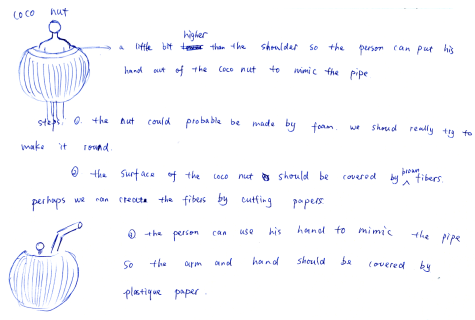 coco nut
higher
a little bit than the shoulder so the person can put his
hand out of the coco nut to mimic the pipe
steps ①. the nut could probable be made by foam. we should really try to
make it round.
② the surface of the coco nut should be covered by brown fibers.
perhaps we can create the fibers by cutting papers.
③ the person can use his hand to mimic the pipe
so the arm and hand should be covered by
plastique paper.